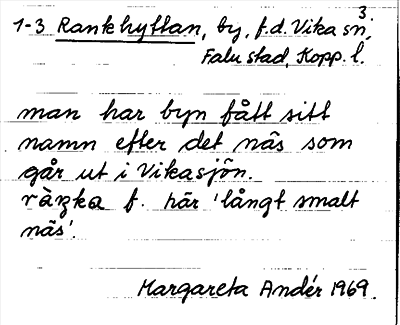 1-3 Rankhyttan, by, f.d. Vika sn,3
Falu stad, Kopp. l.
man har byn fått sitt
namn efter det näs som
går ut i Vikasjön.
ràzka f. här 'långt smalt
näs'.
Margareta Andér 1969.